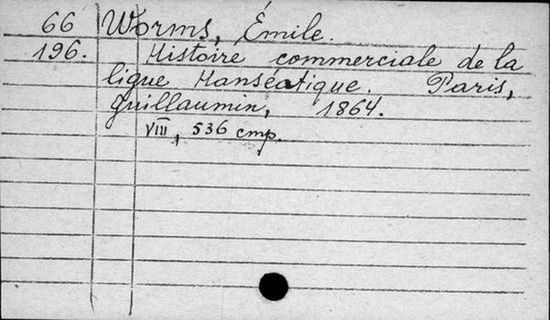 66 Worms, Émile.
196. Histoire commerciale de la
ligue Hanséatique. Paris,
Guillaumin, 1864.
VIII, 536 cmp.